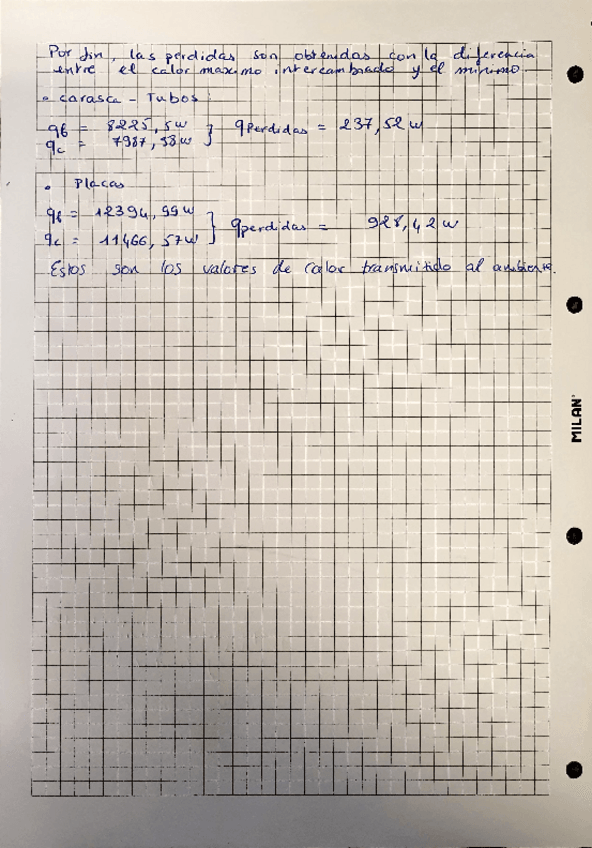 Por fin, las perdidas son obtenidas con la diferencia
entre el calor maximo intercambiado y el minimo.
• Carcasa - Tubos:
qf = 8225,5 w } qPerdidas = 237,52 w
qc = 7987,98 w
• Placas
qf = 12394,99 w } qperdidas = 928,42 w
qc = 11466,57 w
Estos son los valores de calor transmitido al ambiente.
MILAN